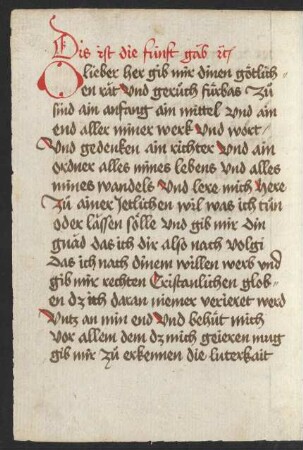 Dis ist die fünft gäb etc
O lieber her gib mir dinen götlich-
en rät Vnd gerüch fürbas Zü
sind ain anfang ain mittel Vnd ain
end aller miner werk Vnd wort /
Vnd gedenken ain richter Vnd ain
ordner alles mines lebens Vnd alles
mines wandels Vnd lere mich here
Zü ainer jetlichen wil was ich tün
oder lässen sölle Vnd gib mir din
gnäd das ich dir also nach volgi
Das ich nach dinem willen werb vnd
gib mir rechten Cristanlichen glob-
en dz ich daran niemer verieret werd
Vntz an min end Vnd behüt mich
Vor allem dem dz mich geieren mug
gib mir Zü erkennen die luterkait